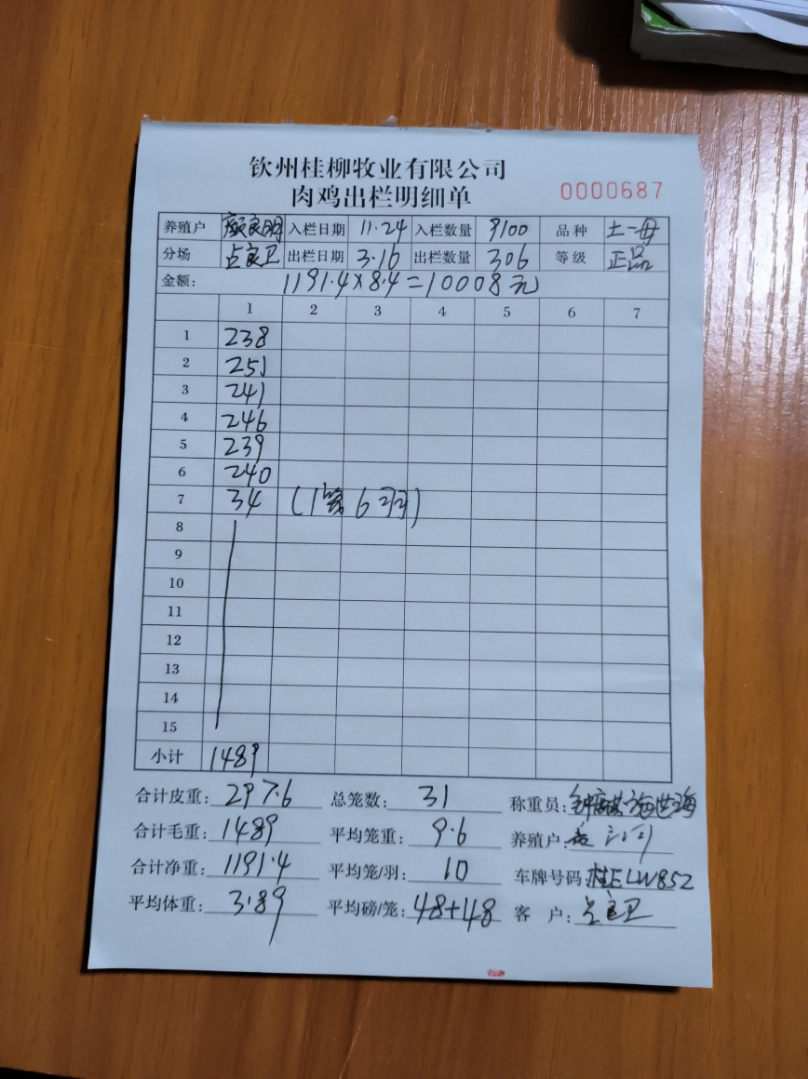 钦州桂柳牧业有限公司
肉鸡出栏明细单 0000687
养殖户 入栏日期 11.24 入栏数量 9100 品种 土一母
分场 占良卫 出栏日期 3.16 出栏数量 306 等级 正品
金额: 1191.4×8.4=10008元
1 2 3 4 5 6 7
1 238
2 251
3 241
4 246
5 239
6 240
7 34 (1笼6羽)
8
9
10
11
12
13
14
15
小计 1489
合计皮重: 297.6 总笼数: 31 称重员:
合计毛重: 1489 平均笼重: 9.6 养殖户:
合计净重: 1191.4 平均笼/羽: 10 车牌号码: 桂ELW852
平均体重: 3.89 平均磅/笼: 48+48 客 户: 占良卫